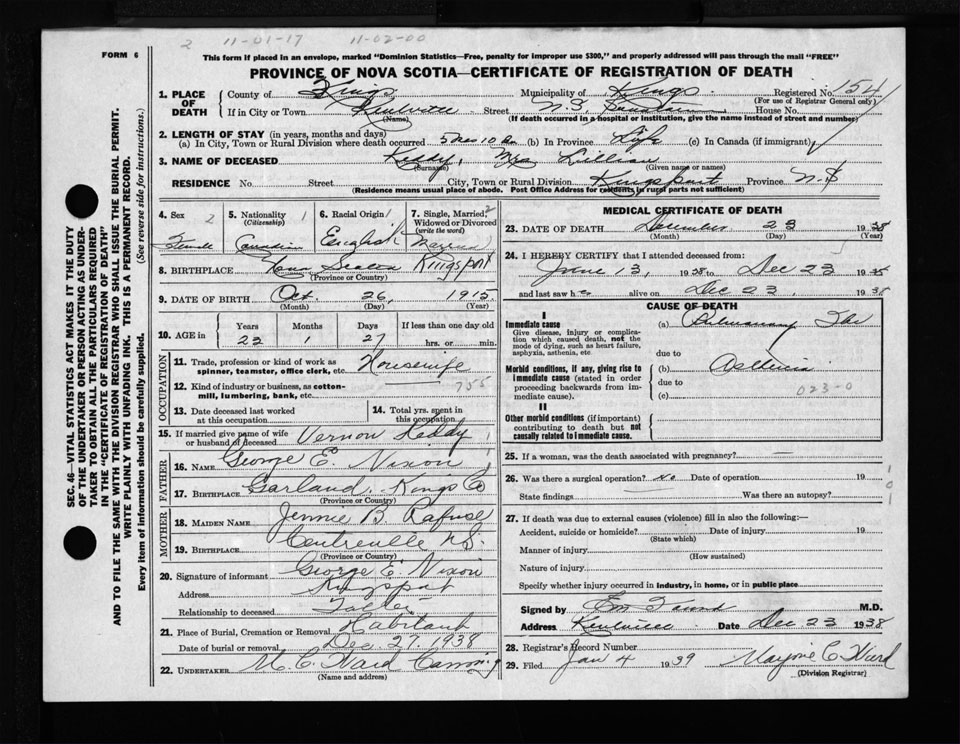 2 11-01-17 11-02-00
FORM 6
This form if placed in an envelope, marked "Dominion Statistics—Free, penalty for improper use $300," and properly addressed will pass through the mail "FREE"
PROVINCE OF NOVA SCOTIA—CERTIFICATE OF REGISTRATION OF DEATH
SEC. 46—VITAL STATISTICS ACT MAKES IT THE DUTY
OF THE UNDERTAKER OR PERSON ACTING AS UNDER-
TAKER TO OBTAIN ALL THE PARTICULARS REQUIRED
IN THE "CERTIFICATE OF REGISTRATION OF DEATH"
AND TO FILE THE SAME WITH THE DIVISION REGISTRAR WHO SHALL ISSUE THE BURIAL PERMIT.
WRITE PLAINLY WITH UNFADING INK. THIS IS A PERMANENT RECORD.
Every item of information should be carefully supplied. (See reverse side for instructions.)
1. PLACE OF DEATH County of Kings Municipality of Kings Registered No. 154
(For use of Registrar General only)
If in City or Town Kentville Street N.S. House No.
(Name) (If death occurred in a hospital or institution, give the name instead of street and number)
2. LENGTH OF STAY (in years, months and days)
(a) In City, Town or Rural Division where death occurred 5 mos 10 Da (b) In Province Life (c) In Canada (if immigrant)
3. NAME OF DECEASED Leddy, Mrs Lillian
(Surname) (Given name or names)
RESIDENCE No. Street City, Town or Rural Division Kingsport Province N.S
(Residence means usual place of abode. Post Office Address for residents in rural parts not sufficient)
4. Sex 2 5. Nationality 1 6. Racial Origin 1 7. Single, Married, 2
(Citizenship) Widowed or Divorced
(write the word)
Female Canadian English Married
8. BIRTHPLACE Nova Scotia Kingsport
(Province or Country)
9. DATE OF BIRTH Oct. 26, 1915
(Month) (Day) (Year)
10. AGE in Years Months Days If less than one day old
23 1 27 hrs. or min.
OCCUPATION
11. Trade, profession or kind of work as
spinner, teamster, office clerk, etc. Housewife
12. Kind of industry or business, as cotton- 755
mill, lumbering, bank, etc.
13. Date deceased last worked
at this occupation
14. Total yrs. spent in
this occupation
15. If married give name of wife
or husband of deceased Vernon Leddy
FATHER
16. NAME George E. Nixon
17. BIRTHPLACE Garland, Kings Co
(Province or Country)
MOTHER
18. MAIDEN NAME Jennie B. Rafuse
19. BIRTHPLACE Centreville NS.
(Province or Country)
20. Signature of informant George E. Nixon
Address Kingsport
Relationship to deceased Father
21. Place of Burial, Cremation or Removal Habitant
Date of burial or removal Dec 27, 1938
22. UNDERTAKER M. C. Ward Canning
(Name and address)
MEDICAL CERTIFICATE OF DEATH
23. DATE OF DEATH December 23 1938
(Month) (Day) (Year)
24. I HEREBY CERTIFY that I attended deceased from:
June 13, 1938 to Dec 23 1938
and last saw her alive on Dec 23, 1938
CAUSE OF DEATH
I
Immediate cause
Give disease, injury or complica-
tion which caused death, not the
mode of dying, such as heart failure,
asphyxia, asthenia, etc
(a) Pulmonary Tbc
due to
Morbid conditions, if any, giving rise to
immediate cause (stated in order
proceeding backwards from im-
mediate cause).
(b)
due to 023-0
(c)
II
Other morbid conditions (if important)
contributing to death but not
causally related to immediate cause.
25. If a woman, was the death associated with pregnancy? —
26. Was there a surgical operation? No Date of operation 19
State findings Was there an autopsy?
27. If death was due to external causes (violence) fill in also the following:—
Accident, suicide or homicide? Date of injury 19
(State which)
Manner of injury
(How sustained)
Nature of injury
Specify whether injury occurred in industry, in home, or in public place
Signed by M.D.
Address Kentville Date Dec 23 1938
28. Registrar's Record Number
29. Filed Jan 4 1939 Marjorie C Ward
(Division Registrar)